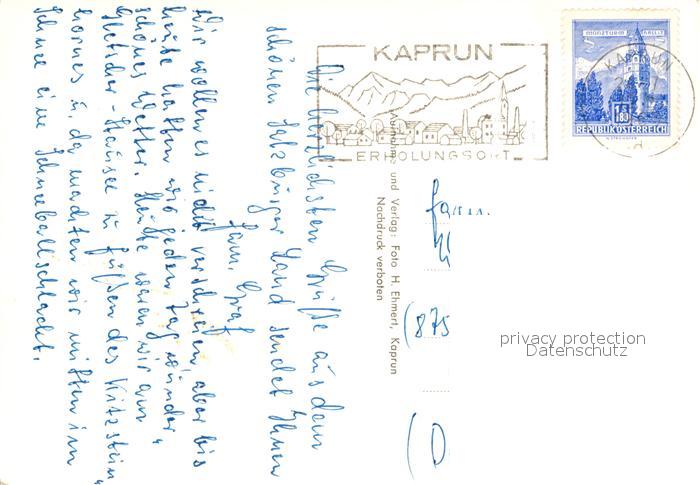 Die herzlichsten Grüße aus dem
schönen Salzburger Land sendet Ihnen
Fam. Graf
Wir wollen es nicht verschreien, aber bis
heute hatten wir jeden Tag wunder-
schönes Wetter. Heute waren wir am
Gletscher-Stausee zu Füßen des Kitzstein-
hornes u. da machten wir mitten im
Schnee eine Schneeballschlacht.
KAPRUN
ERHOLUNGSORT
MÜNZTURM HALL I.T.
S 1.80
REPUBLIK ÖSTERREICH
KAPRUN
Aufnahme und Verlag: Foto H. Ehmert, Kaprun
Nachdruck verboten
Fam.
(875
(D
privacy protection
Datenschutz